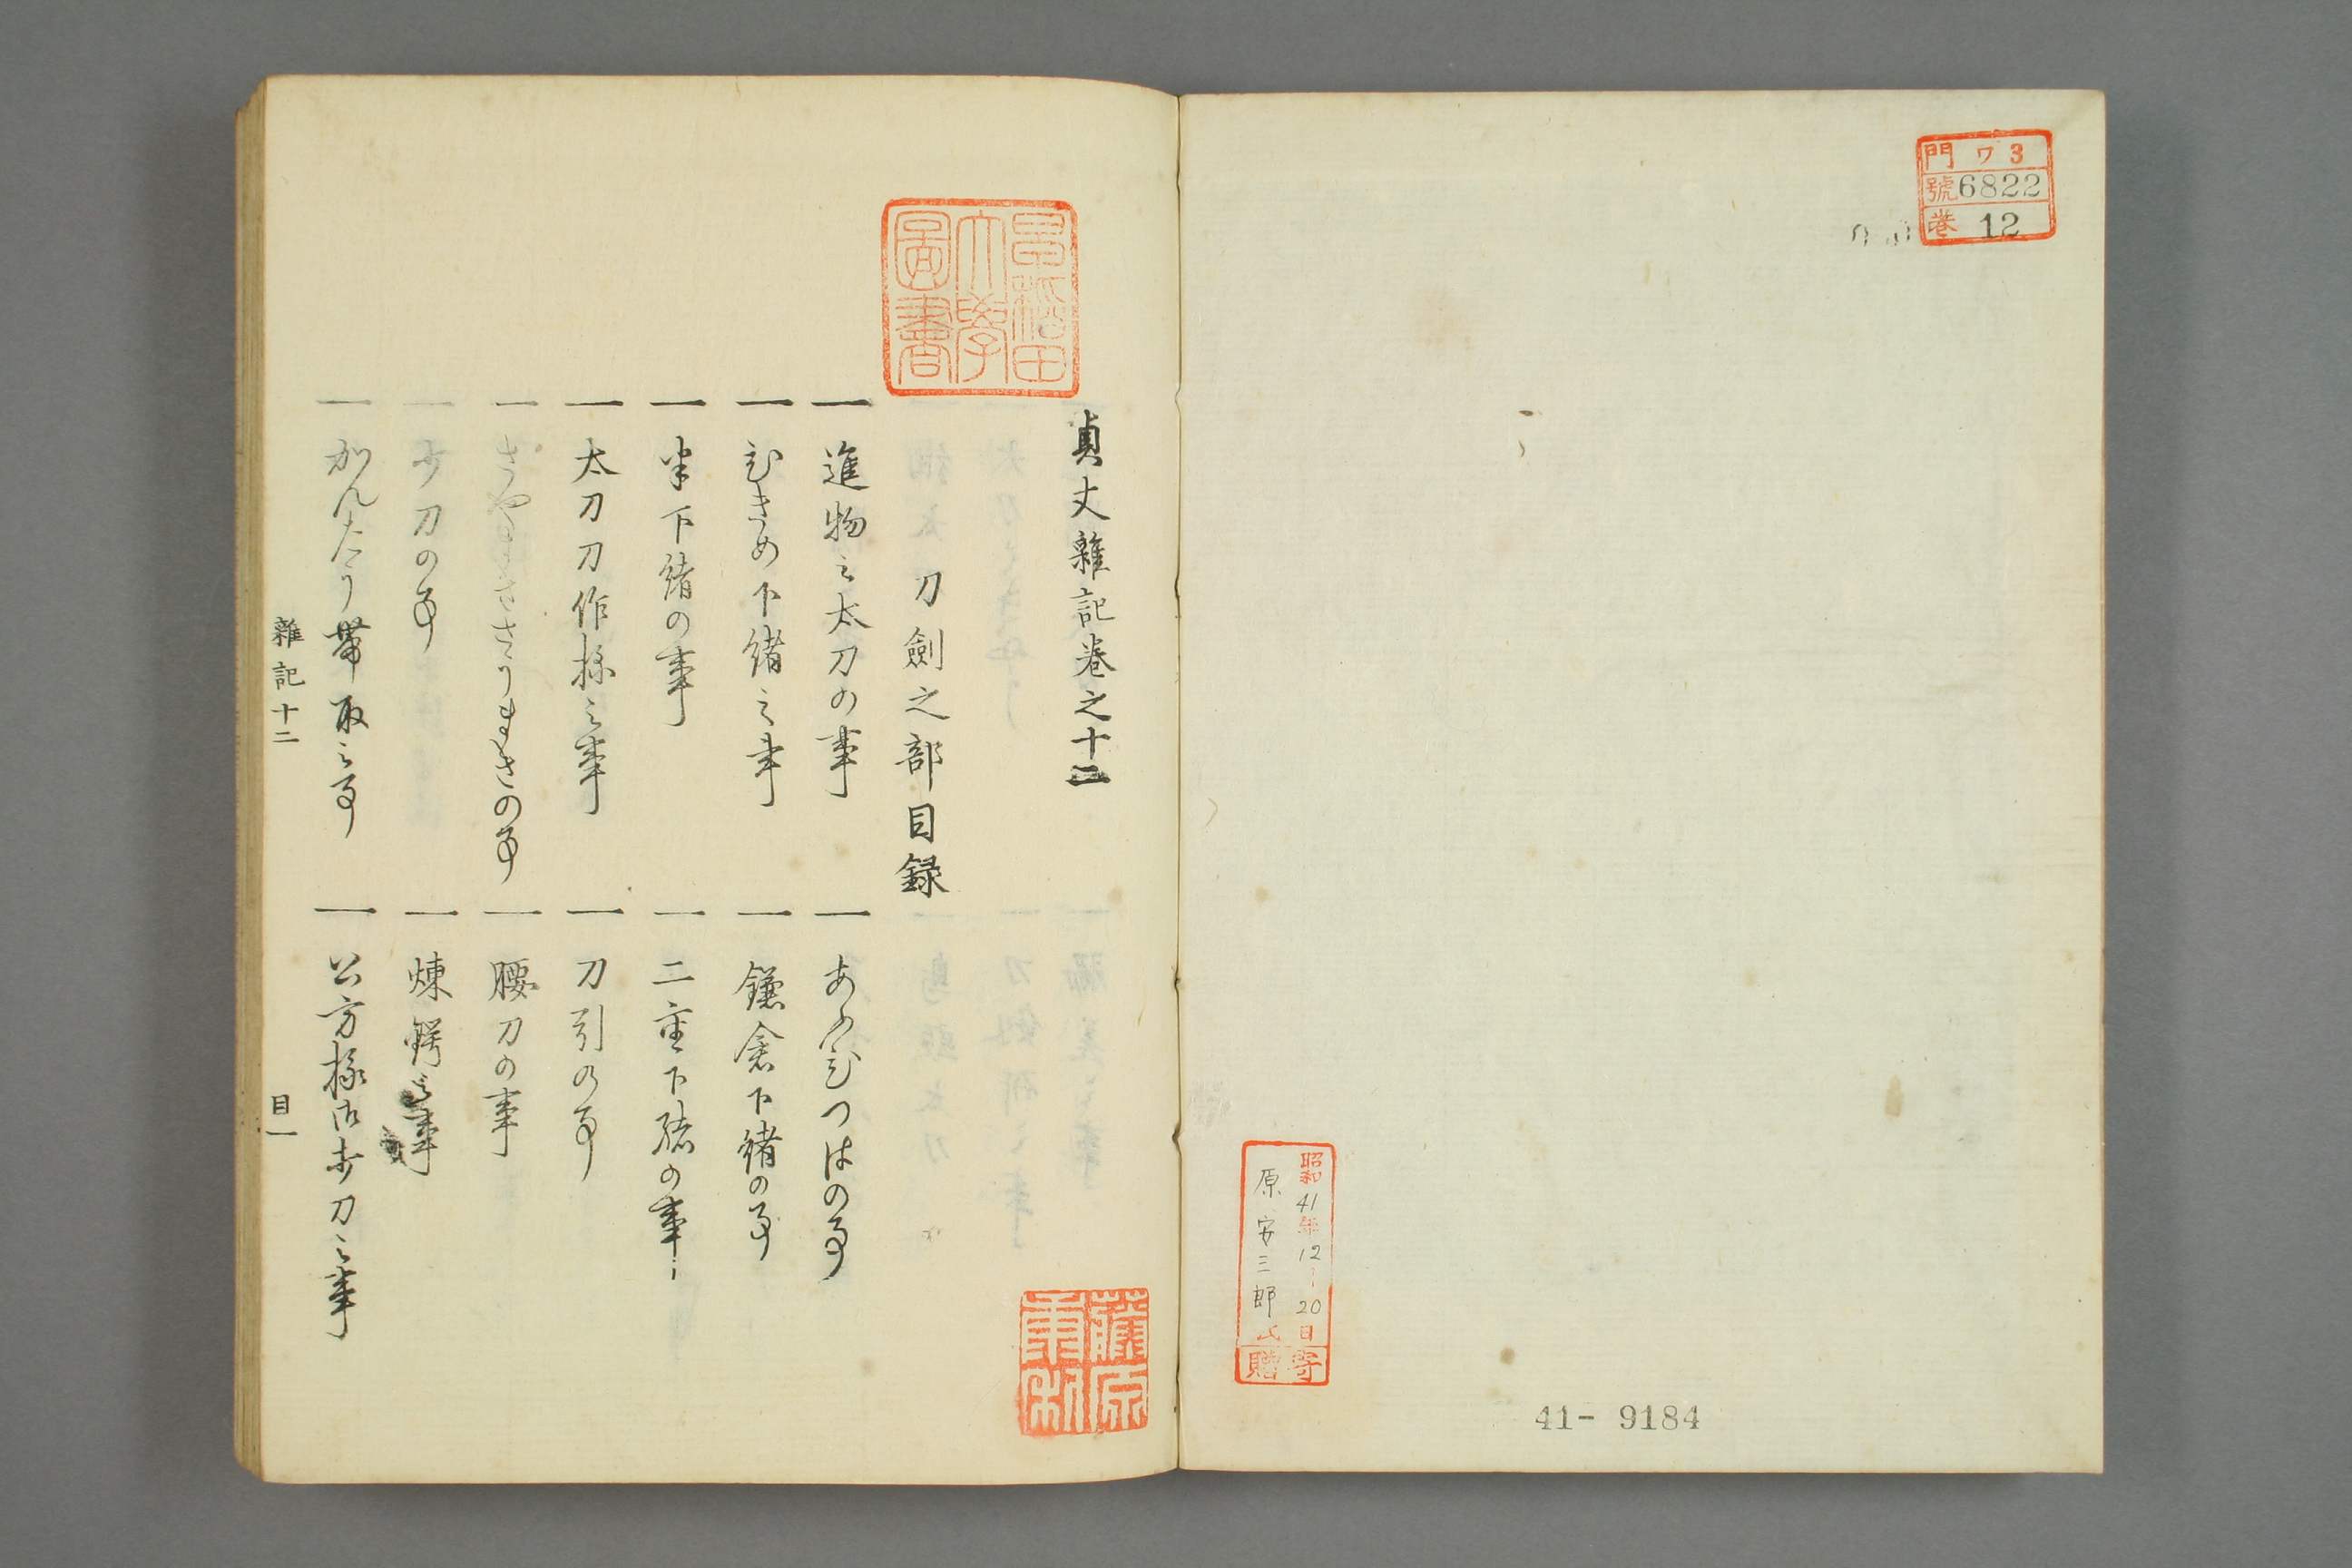 門 ワ 3
號 6822
巻 12
昭和41年12月20日
原安三郎氏
寄贈
41- 9184
早稲田
大學
圖書
貞丈雜記巻之十二
刀劍之部目録
一 進物之太刀の事
一 あふひつはの事
一 むきめ下緒之事
一 鎌倉下緒の事
一 半下緒の事
一 二重下緒の事
一 太刀刀作様之事
一 刀引の事
一 腰刀の事
一 歩刀の事
一 煉鍔之事
一 かんたう帯取之事
一 公方様御歩刀之事
雜記十二
目一
藤原